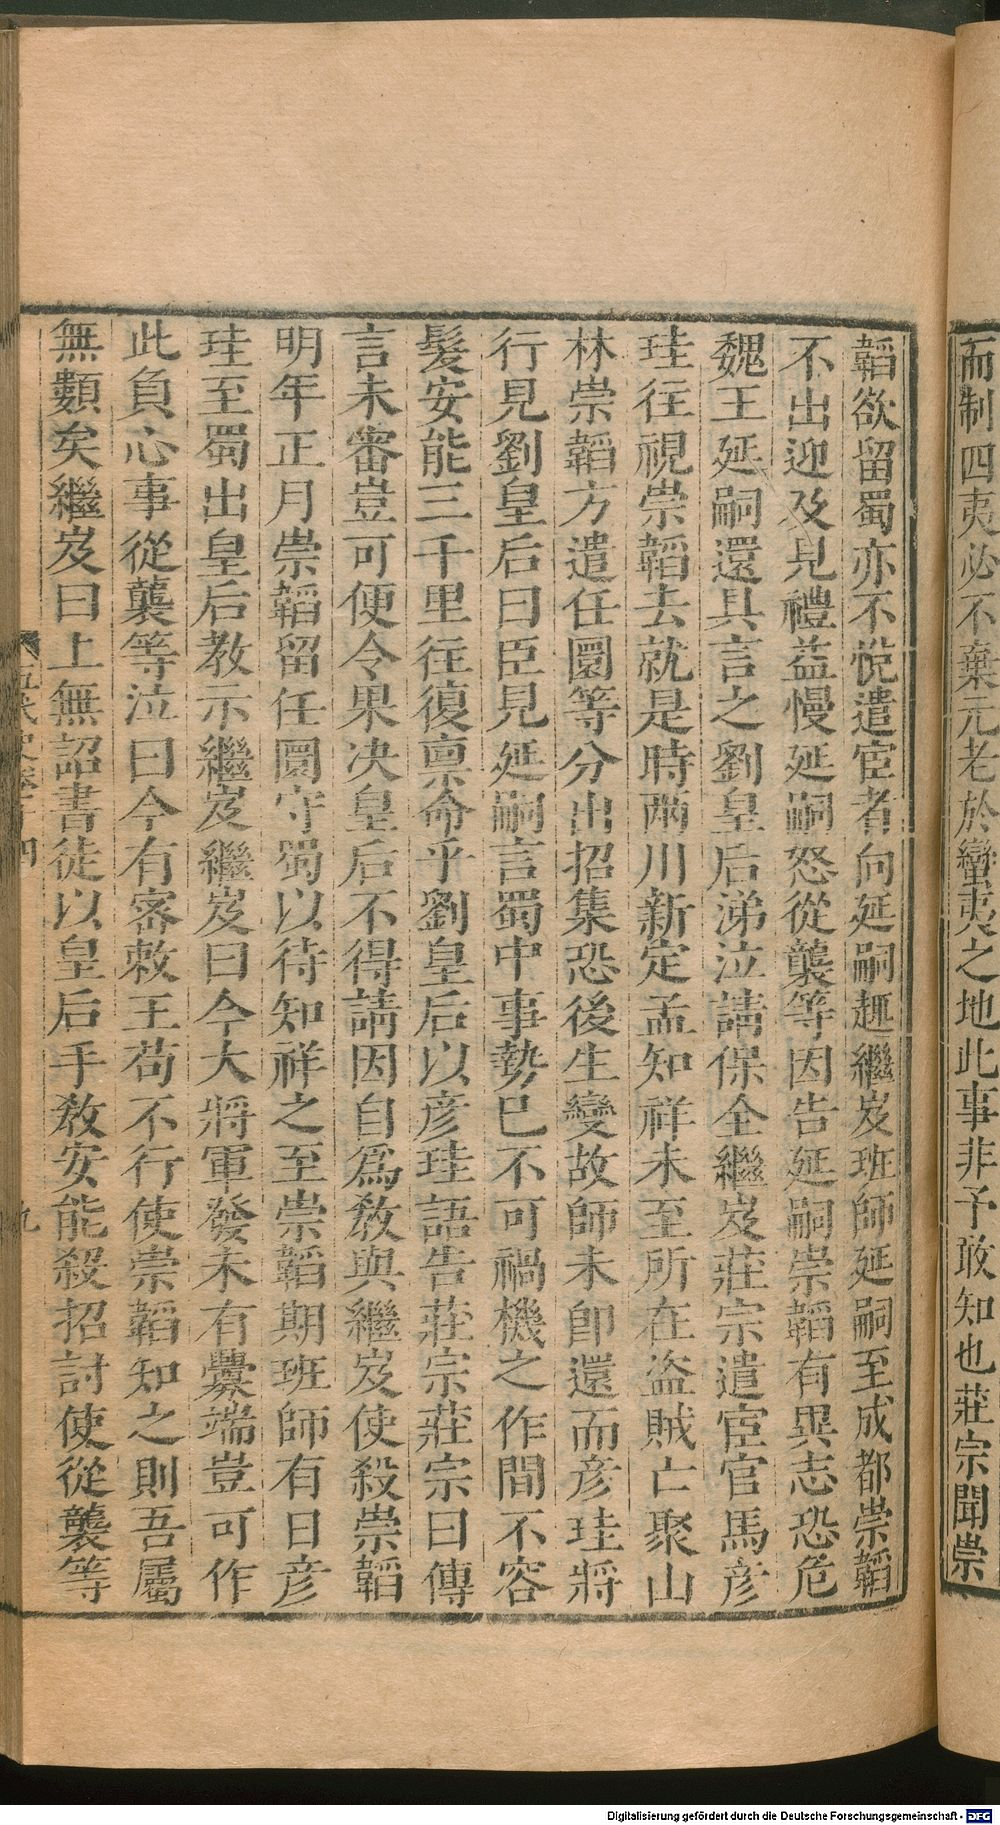 而制四夷必不棄元老於蠻夷之地此事非予敢知也莊宗聞崇
韜欲留蜀亦不悅遣宦者向延嗣趣繼岌班師延嗣至成都崇韜
不出迎及見禮益慢延嗣怒從襲等因告延嗣崇韜有異志恐危
魏王延嗣還具言之劉皇后涕泣請保全繼岌莊宗遣宦官馬彥
珪往視崇韜去就是時兩川新定孟知祥未至所在盜賊亡聚山
林崇韜方遣任圜等分出招集恐後生變故師未卽還而彥珪將
行見劉皇后曰臣見延嗣言蜀中事勢已不可禍機之作間不容
髮安能三千里往復稟命乎劉皇后以彥珪語告莊宗莊宗曰傳
言未審豈可便令果决皇后不得請因自爲教與繼岌使殺崇韜
明年正月崇韜留任圜守蜀以待知祥之至崇韜期班師有日彥
珪至蜀出皇后教示繼岌繼岌曰今大將軍發未有釁端豈可作
此負心事從襲等泣曰今有密敕王苟不行使崇韜知之則吾屬
無類矣繼岌曰上無詔書徒以皇后手教安能殺招討使從襲等
五代史卷二十四
九
Digitalisierung gefördert durch die Deutsche Forschungsgemeinschaft - DFG